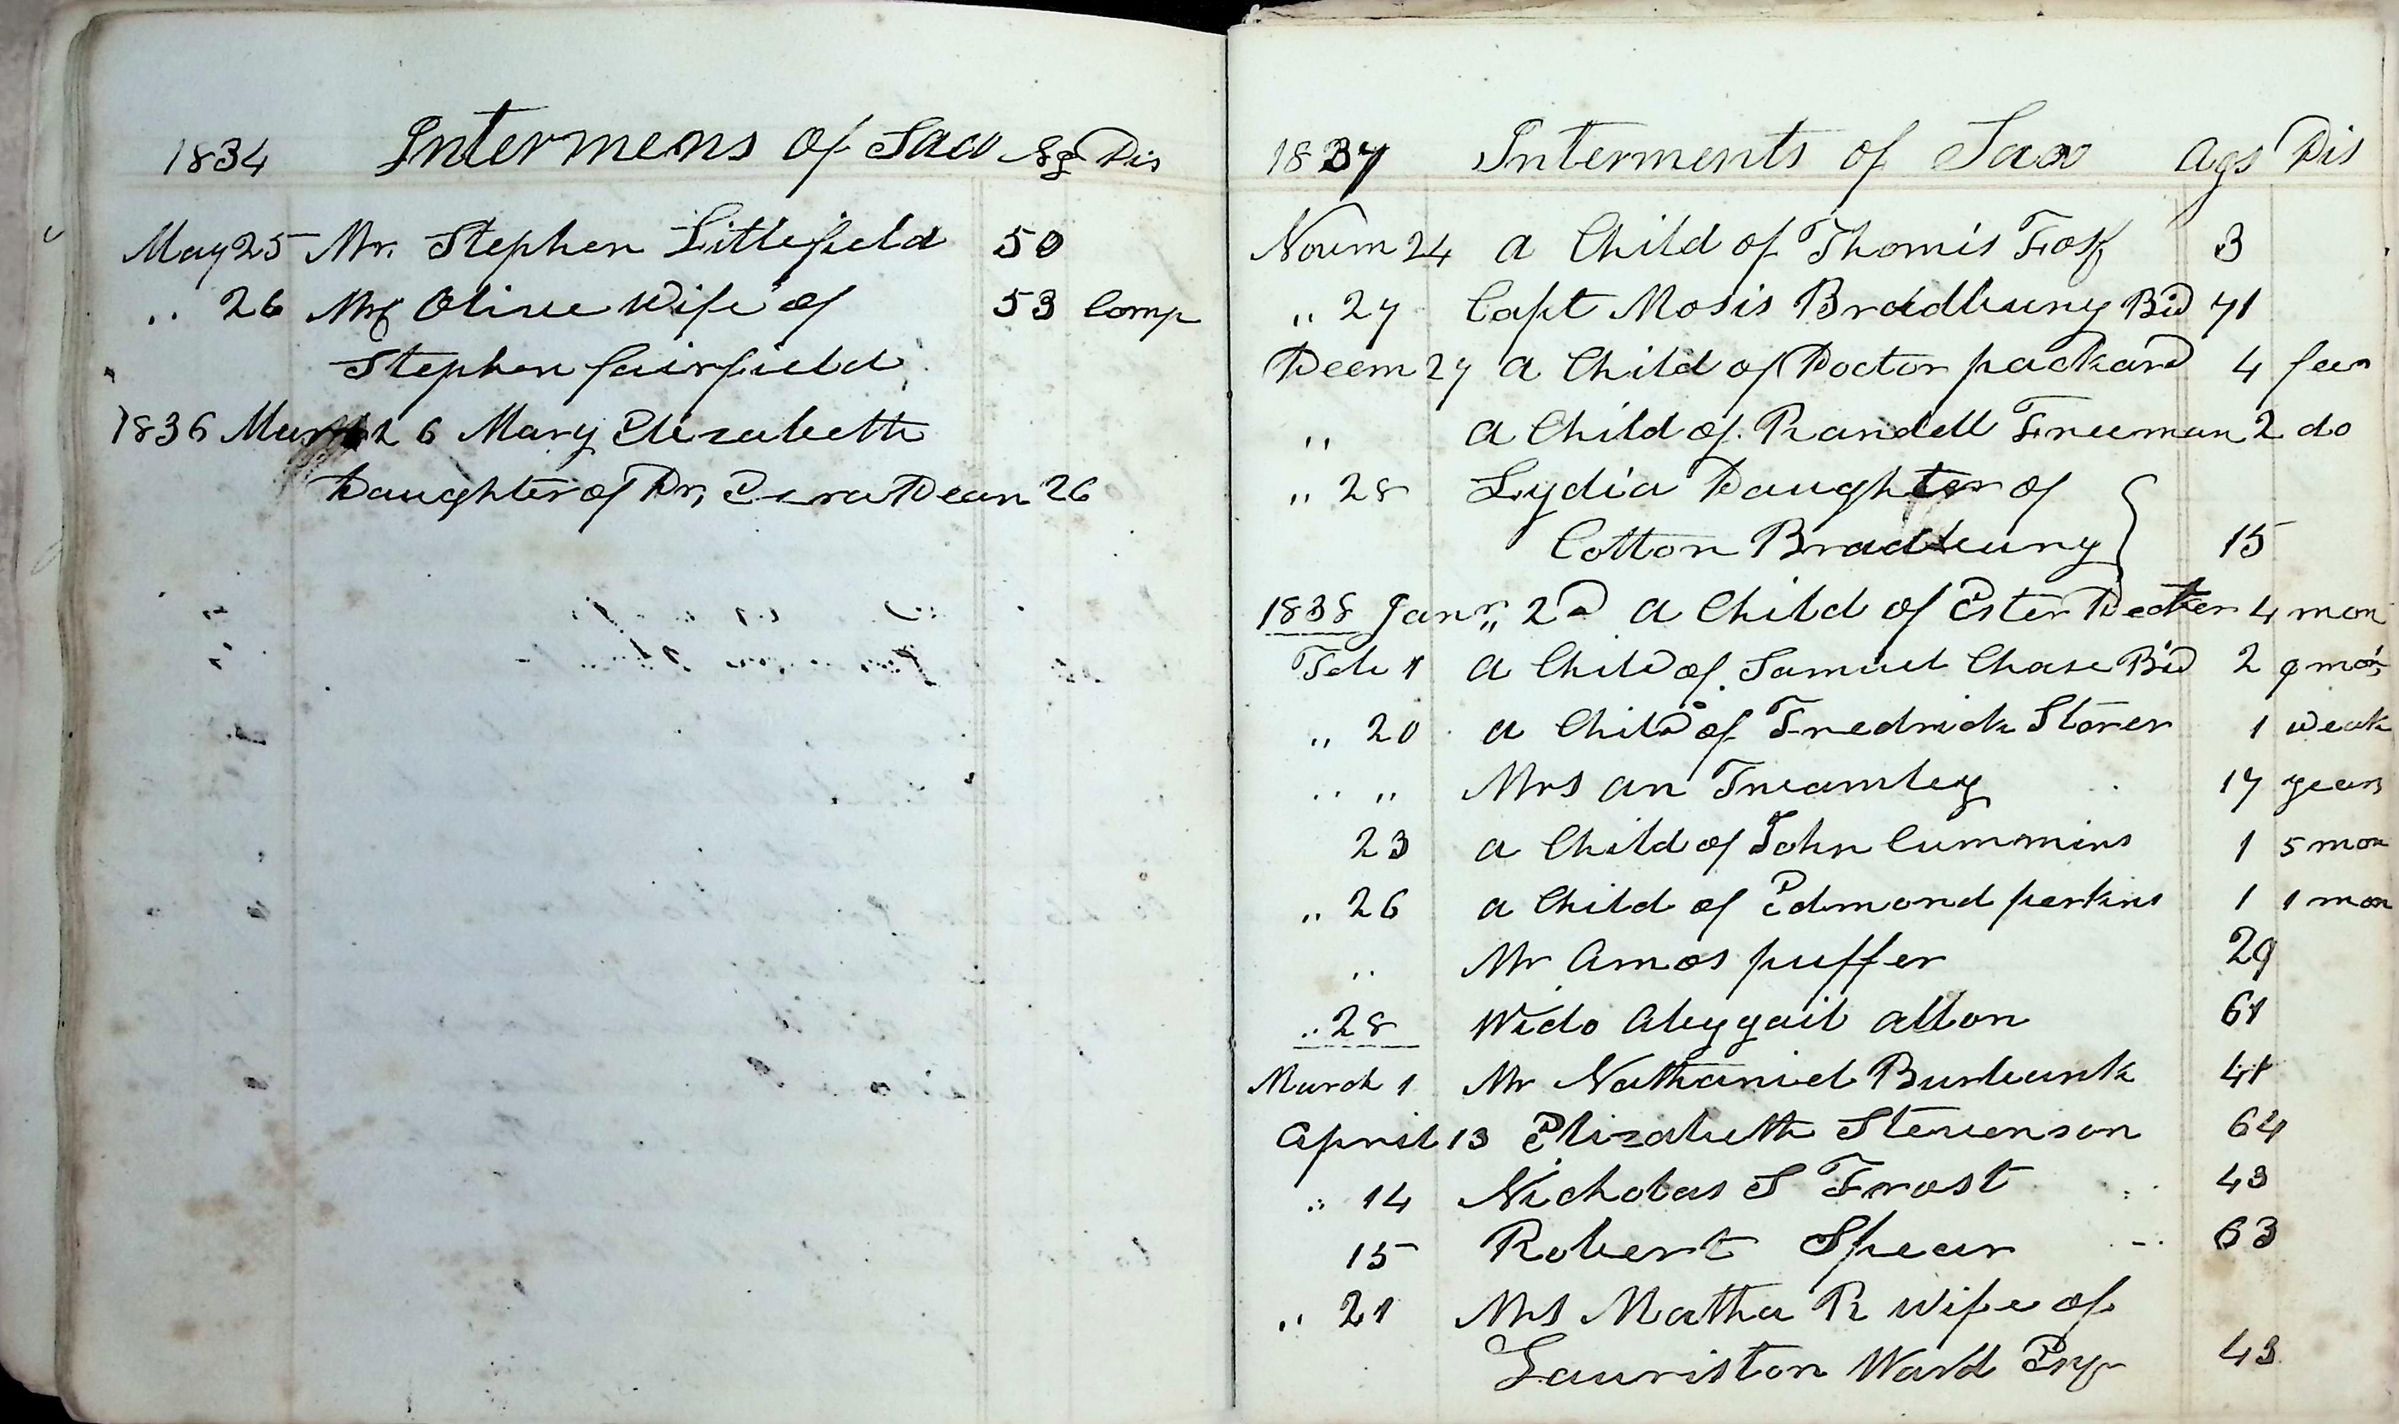 1834 Intermens of Saco Ag Dis
May 25 Mr. Stephen Littlefield 50
" 26 Mrs Olive Wife of 53 Comp
Stephen fairfield
1836 March 26 Mary Elizabeth
Daughter of Dr, Ezra Dean 26
1837 Interments of Saco Ags Dis
Novem 24 a Child of Thomis Foss 3
" 27 Capt Mosis Bradbury Bid 71
Deem 27 a Child of Doctor packard 4 fever
" a Child of Randell Freeman 2 do
" 28 Lydia Daughter of
Cotton Bradbury 15
1838 Janr 2d a Child of Ester Decker 4 mon
Feb 1 a Child of Samuel Chase Bid 2 9 mon
" 20 a Child of Fredrick Storer 1 weak
" " Mrs an Treamley 17 years
23 a Child of John Cummins 1 5 mon
" 26 a Child of Edmond perkins 1 1 mon
" Mr Amos puffer 29
" 28 Wido Abyggail allon 61
March 1 Mr Nathaniel Burbank 41
April 13 Elizabeth Stevenson 64
" 14 Nicholas S Frost 43
15 Robert Spear 63
" 21 Mrs Matha R wife of
Lauriston Ward Esq 43